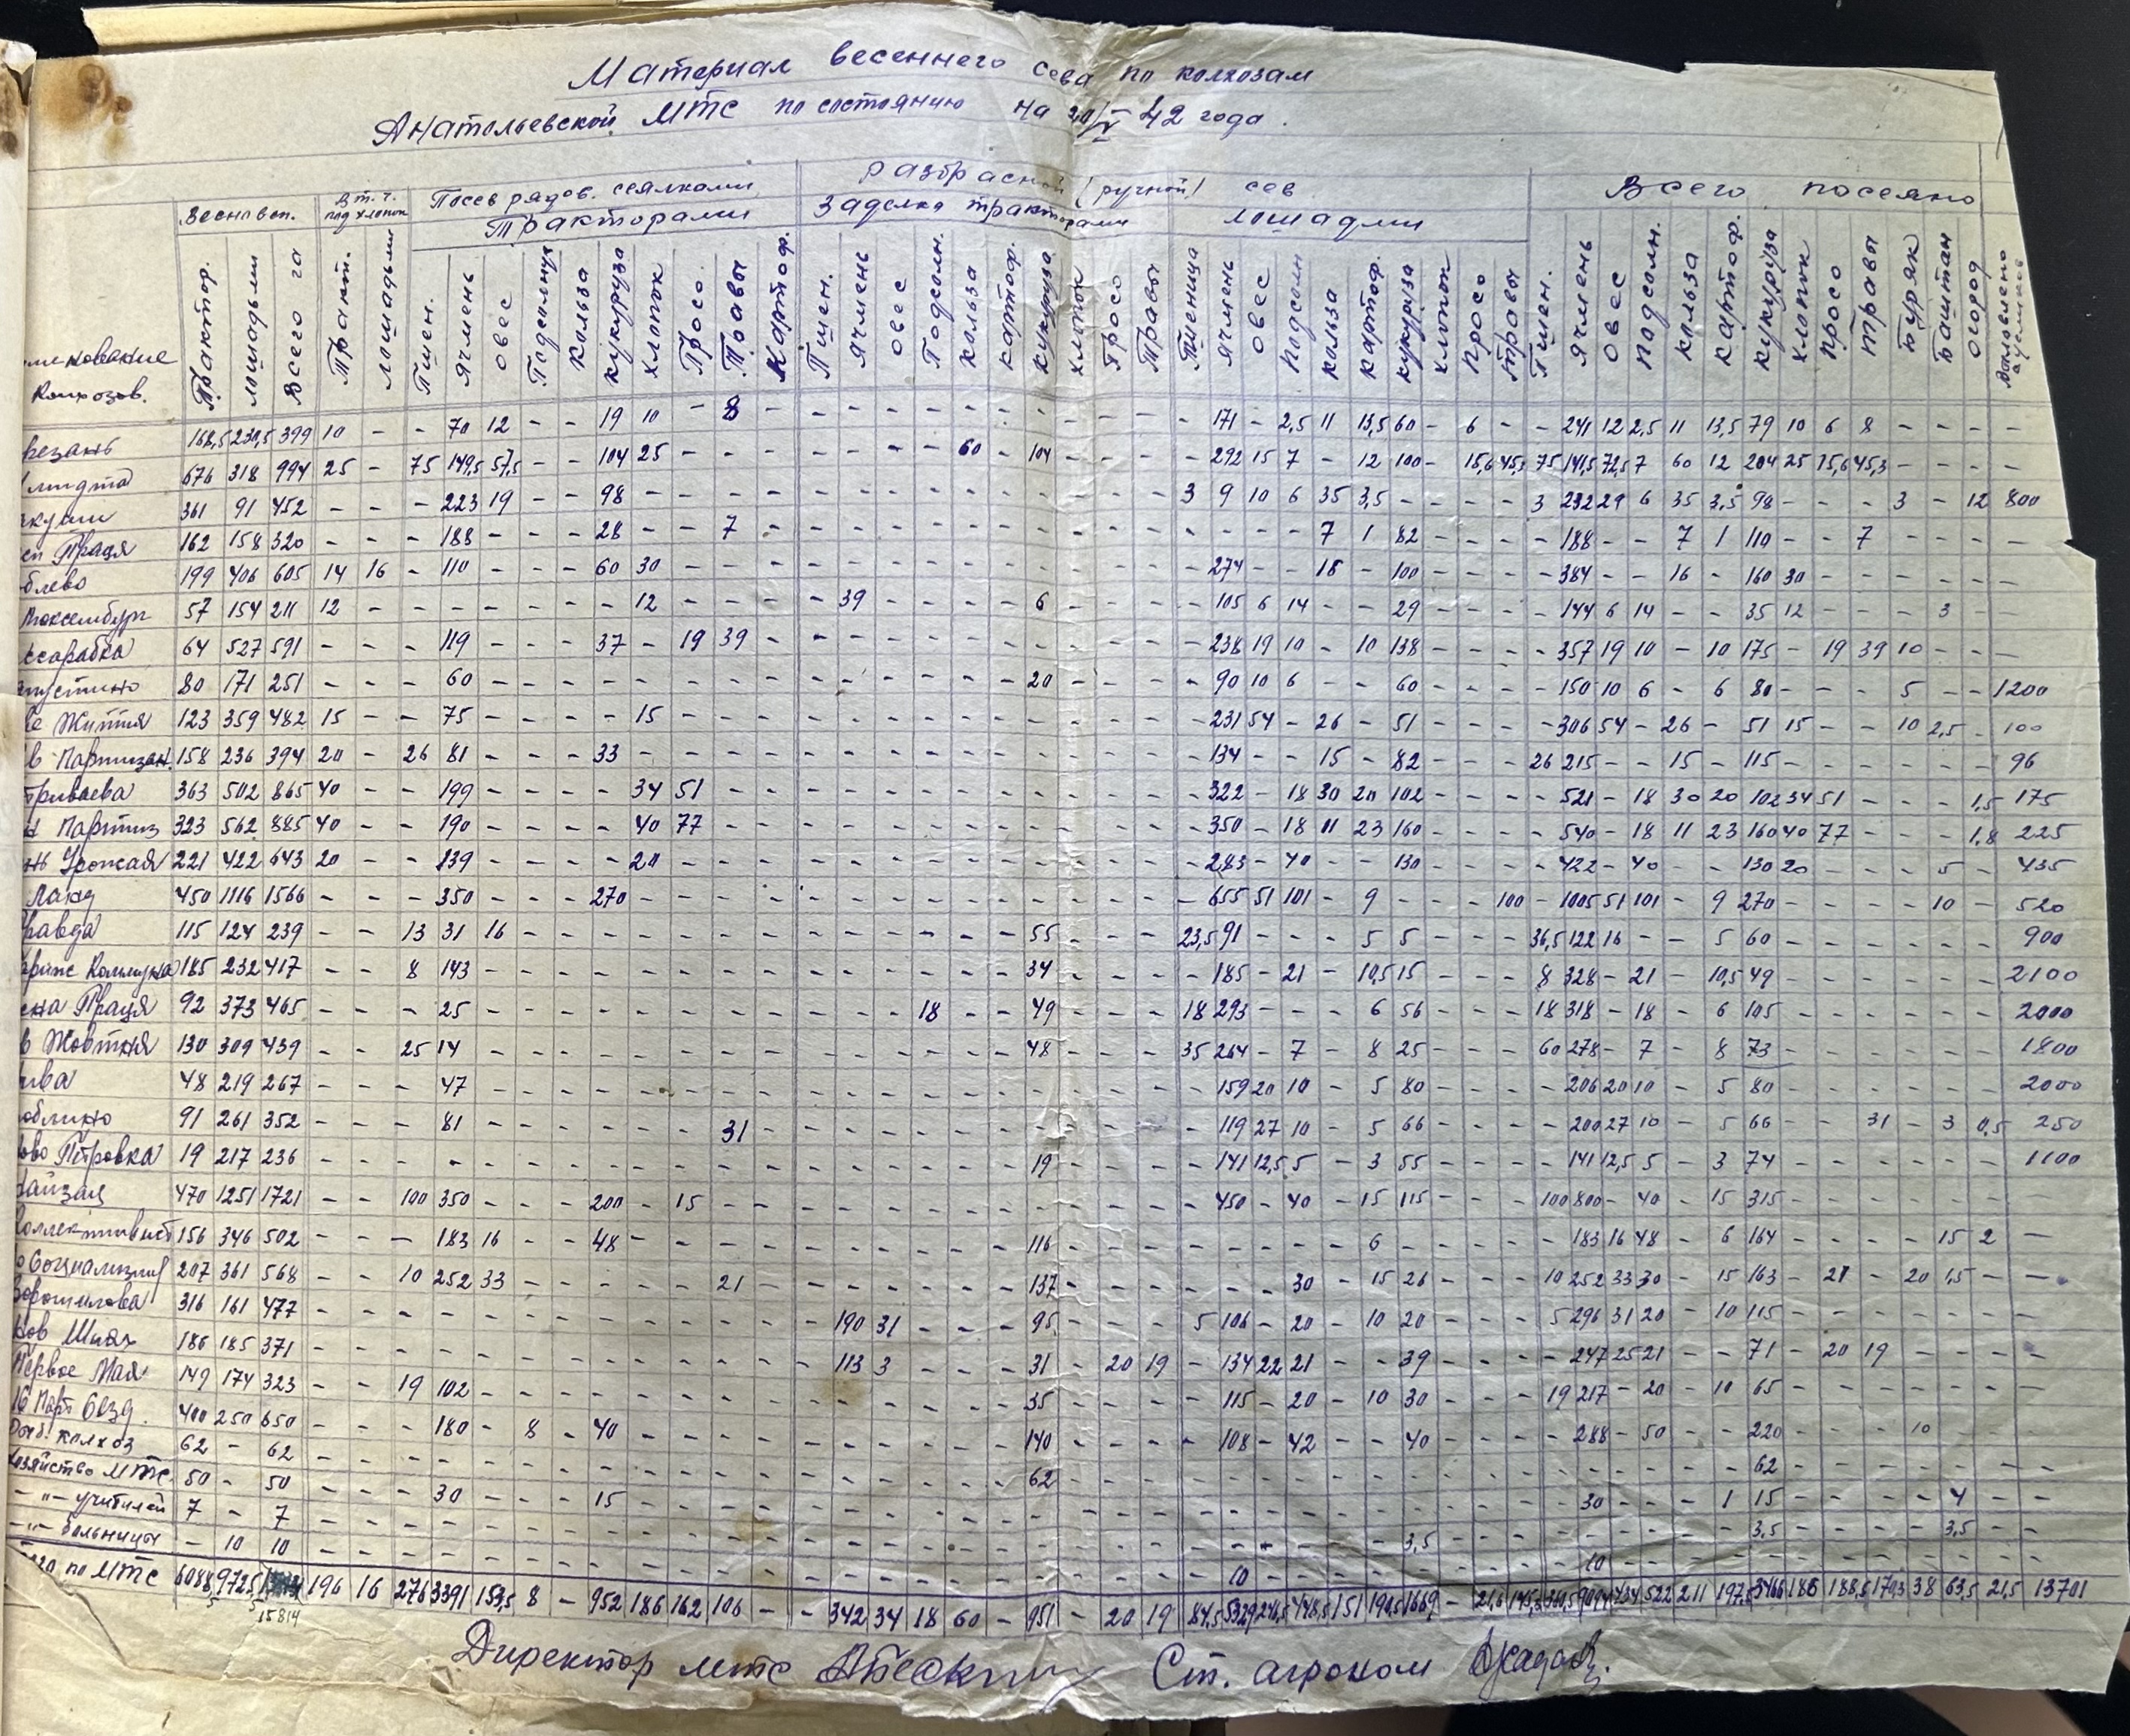 Материал весеннего сева по колхозам
Анатольевской МТС по состоянию на 20/V 42 года.
Весновсп. В т.ч. под хлопок Посев рядов. сеялками Разбросной (ручной) сев Всего посеяно
Тракторами Заделка тракторами Лошадми
Колхозов. Трактор. Лошадьми Всего га Тракт. Лошадьми Пшен. Ячмень Овес Подсолнух Кольза Кукуруза Хлопок Просо Травы Картоф. Пшен. Ячмень Овес Подсолн. Кольза Картоф. Кукуруза Хлопок Просо Травы Пшеница Ячмень Овес Подсолн Кольза Картоф. Кукуруза Хлопок Просо Травы Пшен. Ячмень Овес Подсолн. Кольза Картоф. Кукуруза Хлопок Просо Травы Буряк Баштан Огород
168,5 230,5 399 10 - - 70 12 - - 19 10 - 8 - - - - - - - - - - - - 171 - 2,5 11 13,5 60 - 6 - - 241 12 2,5 11 13,5 79 10 6 8 - - - -
676 318 994 25 - 75 149,5 57,5 - - 104 25 - - - - - - - 60 - 104 - - - - 292 15 7 - 12 100 - 15,6 45,3 75 141,5 72,5 7 60 12 204 25 15,6 45,3 - - - -
361 91 452 - - - 223 19 - - 98 - - - - - - - - - - - - - - 3 9 10 6 35 3,5 - - - - 3 232 29 6 35 3,5 98 - - - 3 - 12 800
162 158 320 - - - 188 - - - 28 - - 7 - - - - - - - - - - - - - - - 7 1 82 - - - - 188 - - 7 1 110 - - 7 - - - -
199 406 605 14 16 - 110 - - - 60 30 - - - - - - - - - - - - - - 274 - - 16 - 100 - - - - 384 - - 16 - 160 30 - - - - - -
57 154 211 12 - - - - - - - 12 - - - - 39 - - - - 6 - - - - 105 6 14 - - 29 - - - - 144 6 14 - - 35 12 - - - 3 - -
64 527 591 - - - 119 - - - 37 - 19 39 - - - - - - - - - - - - 238 19 10 - 10 138 - - - - 357 19 10 - 10 175 - 19 39 10 - - -
80 171 251 - - - 60 - - - - - - - - - - - - - - 20 - - - - 90 10 6 - - 60 - - - - 150 10 6 - 6 80 - - - 5 - - 1200
Життя 123 359 482 15 - - 75 - - - - 15 - - - - - - - - - - - - - - 231 54 - 26 - 51 - - - - 306 54 - 26 - 51 15 - - 10 2,5 - 100
Партизан. 158 236 394 20 - 26 81 - - - 33 - - - - - - - - - - - - - - - 134 - - 15 - 82 - - - 26 215 - - 15 - 115 - - - - - - 96
363 502 865 40 - - 199 - - - - 34 51 - - - - - - - - - - - - - 322 - 18 30 20 102 - - - - 521 - 18 30 20 102 34 51 - - - 1,5 175
Партиз 323 562 885 40 - - 190 - - - - 40 77 - - - - - - - - - - - - - 350 - 18 11 23 160 - - - - 540 - 18 11 23 160 40 77 - - - 1,8 225
Урожая 221 422 643 20 - - 139 - - - - 20 - - - - - - - - - - - - - - 283 - 40 - - 130 - - - - 422 - 40 - - 130 20 - - - 5 - 435
450 1116 1566 - - - 350 - - - 270 - - - - - - - - - - - - - - - 655 51 101 - 9 - - - 100 - 1005 51 101 - 9 270 - - - - 10 - 520
115 124 239 - - 13 31 16 - - - - - - - - - - - - - 55 - - - 23,5 91 - - - 5 5 - - - 36,5 122 16 - - 5 60 - - - - - - 900
185 232 417 - - 8 143 - - - - - - - - - - - - - - 34 - - - - 185 - 21 - 10,5 15 - - - 8 328 - 21 - 10,5 49 - - - - - - 2100
Праця 92 373 465 - - - 25 - - - - - - - - - - - 18 - - 49 - - - 18 293 - - - 6 56 - - - 18 318 - 18 - 6 105 - - - - - - 2000
Жовтня 130 309 439 - - 25 14 - - - - - - - - - - - - - - 48 - - - 35 264 - 7 - 8 25 - - - 60 278 - 7 - 8 73 - - - - - - 1800
48 219 267 - - - 47 - - - - - - - - - - - - - - - - - - - 159 20 10 - 5 80 - - - - 206 20 10 - 5 80 - - - - - - 2000
91 261 352 - - - 81 - - - - - - 31 - - - - - - - - - - - - 119 27 10 - 5 66 - - - - 200 27 10 - 5 66 - - 31 - 3 0,5 250
Петровка 19 217 236 - - - - - - - - - - - - - - - - - - 19 - - - - 141 12,5 5 - 3 55 - - - - 141 12,5 5 - 3 74 - - - - - - 1100
470 1251 1721 - - 100 350 - - - 200 - 15 - - - - - - - - - - - - - 450 - 40 - 15 115 - - - 100 800 - 40 - 15 315 - - - - - - -
Коллективист 156 346 502 - - - 183 16 - - 48 - - - - - - - - - - 116 - - - - - - - - 6 - - - - - 183 16 48 - 6 164 - - - - 15 2 -
Социализм 207 361 568 - - 10 252 33 - - - - - 21 - - - - - - - 137 - - - - - - 30 - 15 26 - - - 10 252 33 30 - 15 163 - 21 - 20 1,5 - -
Ворошилова 316 161 477 - - - - - - - - - - - - - 190 31 - - - 95 - - - 5 106 - 20 - 10 20 - - - 5 296 31 20 - 10 115 - - - - - - -
Шлях 186 185 371 - - - - - - - - - - - - - 113 3 - - - 31 - 20 19 - 134 22 21 - - 39 - - - - 247 25 21 - - 71 - 20 19 - - - -
Первое Мая 149 174 323 - - 19 102 - - - - - - - - - - - - - - 35 - - - - 115 - 20 - 10 30 - - - 19 217 - 20 - 10 65 - - - - - - -
16 Парт. Сезд. 400 250 650 - - - 180 - 8 - 40 - - - - - - - - - - 140 - - - - 108 - 42 - - 40 - - - - 288 - 50 - - 220 - - - 10
колхоз 62 - 62 - - - - - - - - - - - - - - - - - - 62 - - - - - - - - - - - - - - - - - - - 62 - - - - - - -
Хозяйство МТС. 50 - 50 - - - 30 - - - 15 - - - - - - - - - - - - - - - - - - - - - - - - - 30 - - - 1 15 - - - - 4 - -
-"- учителей 7 - 7 - - - - - - - - - - - - - - - - - - - - - - - - - - - - 3,5 - - - - - - - - - 3,5 - - - - 3,5 - -
-"- больницы - 10 10 - - - - - - - - - - - - - - - - - - - - - - - 10 - - - - - - - - - 10 - - - - - - - - - - - -
по МТС 6088,5 9725,5 15814 196 16 276 3391 153,5 8 - 952 186 162 106 - - 342 34 18 60 - 951 - 20 19 84,5 5329 448,5 151 190,5 1669 - 21,6 522 211 197,5 3466 186 188,5 170,3 38 63,5 21,5 13701
Директор мтс Ст. агроном